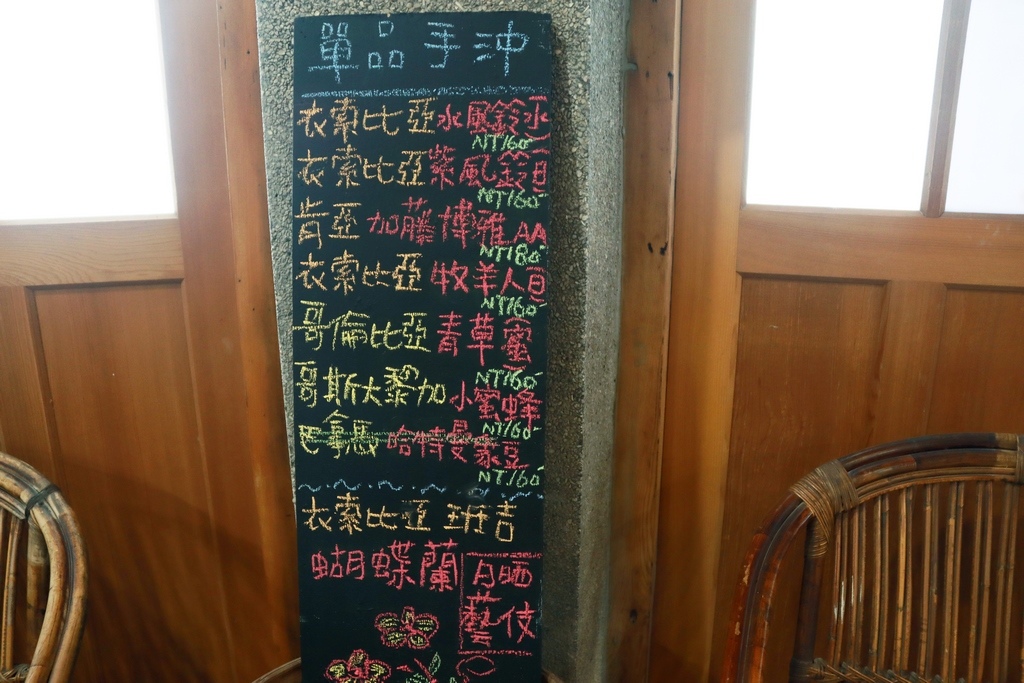 單品手沖
衣索比亞水風鈴水
NT160-
衣索比亞紫風鈴日
NT160-
肯亞加藤博雅AA
NT180-
衣索比亞牧羊人日
NT160-
哥倫比亞青草蜜
NT160-
哥斯大黎加小蜜蜂
NT160-
巴拿馬哈特曼家豆
NT160
衣索比亞班吉
蝴蝶蘭
日晒
藝伎